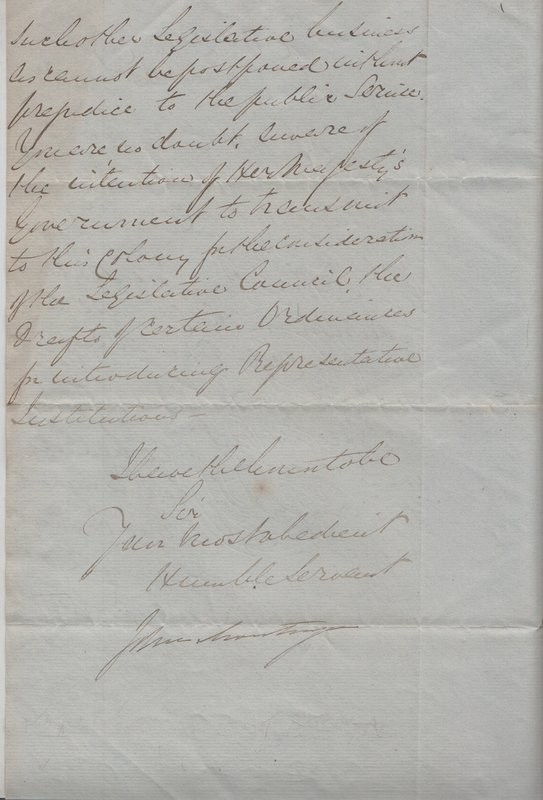 such other Legislative business
as cannot be postponed without
prejudice to the public Service.
You are, no doubt, aware of
the intention of Her Majesty's
Government to transmit
to this Colony for the consideration
of the Legislative Council, the
Drafts of certain Ordinances
for introducing Representative
Institutions—
I have the honor to be
Sir
Your Most obedient
Humble Servant
John Montagu